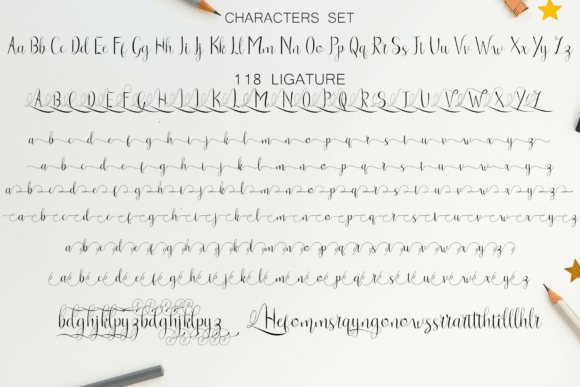 CHARACTERS SET
Aa Bb Cc Dd Ee Ff Gg Hh Ii Jj Kk Ll Mm Nn Oo Pp Qq Rr Ss Tt Uu Vv Ww Xx Yy Zz
118 LIGATURE
A B C D E F G H I J K L M N O P Q R S T U V W X Y Z
a b c d e f g h i j k l m n o p q r s t u v w x y z
a b c d e f g h i j k l m n o p q r s t u v w x y z
a b c d e f g h i j k l m n o p q r s t u v w x y z
a b c d e f g h i j k l m n o p q r s t u v w x y z
a b c d e f g h i j k l m n o p q r s t u v w x y z
a b c d e f g h i j k l m n o p q r s t u v w x y z
bdghjklpyzbdghjklpyz